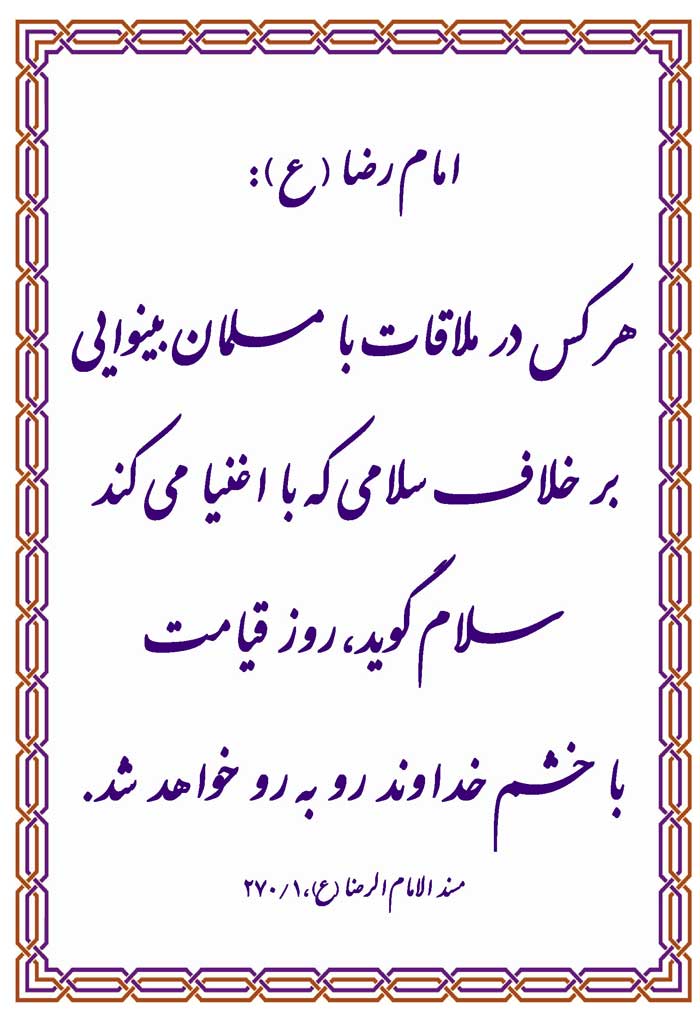 امام رضا (ع):
هرکس در ملاقات با مسلمان بینوایی
بر خلاف سلامی که با اغنیا می کند
سلام گوید، روز قیامت
با خشم خداوند رو به رو خواهد شد.
مسند الامام الرضا (ع)، ۲۷۰/۱